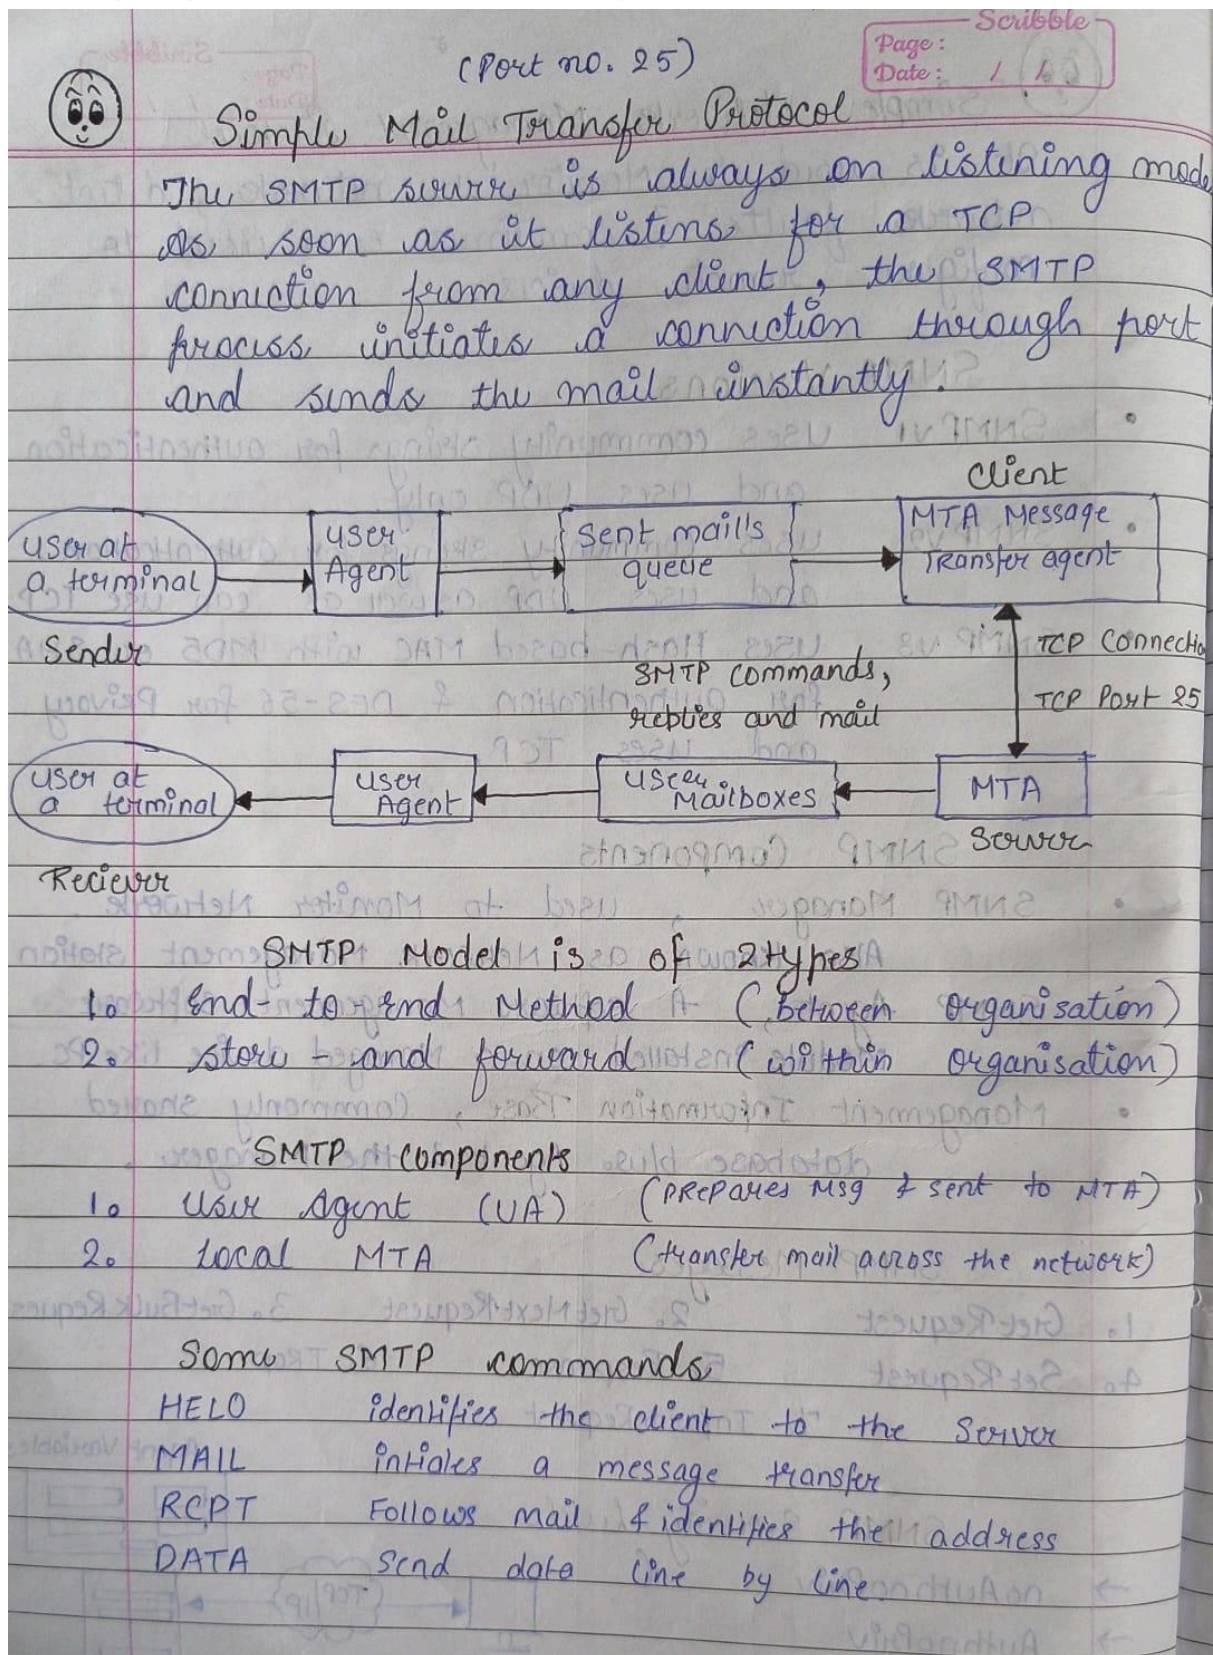 Scribble
Page:
Date: / /
(Port no. 25)
Simple Mail Transfer Protocol
The SMTP server is always on listening mode.
As soon as it listens for a TCP
connection from any client, the SMTP
process initiates a connection through port
and sends the mail instantly.
Client
User at
a terminal
User
Agent
Sent mail's
queue
MTA Message
Transfer agent
Sender
SMTP commands,
replies and mail
TCP Connectio
TCP Port 25
User at
a terminal
User
Agent
User
Mailboxes
MTA
Server
Reciever
SMTP Model is of 2 types
1. End-to-end Method (between organisation)
2. store-and forward (within organisation)
SMTP components
1. User Agent (UA) (PRepares Msg & sent to MTA)
2. Local MTA (transfer mail across the network)
Some SMTP commands
HELO identifies the client to the Server
MAIL intiales a message transfer
RCPT Follows mail & identifies the address
DATA send data line by line.